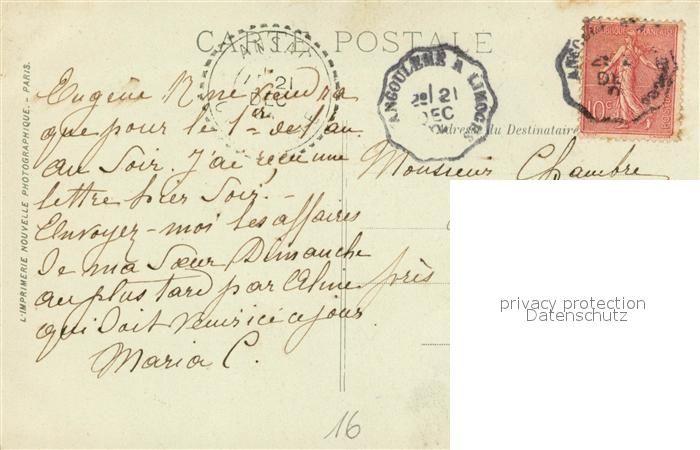 CARTE POSTALE
ANSAC
21
DEC
ANGOULEME A LIMOGES
21
DEC
10c
Adresse du Destinataire
L'IMPRIMERIE NOUVELLE PHOTOGRAPHIQUE. - PARIS.
Eugène ne viendra
que pour le 1er de l'an
au soir. J'ai reçu une
lettre hier soir. -
Envoyez-moi les affaires
de ma Sœur Dimanche
au plus tard par
qui doit venir ici ce jour
Maria C.
Monsieur Chambre
près
16
privacy protection
Datenschutz